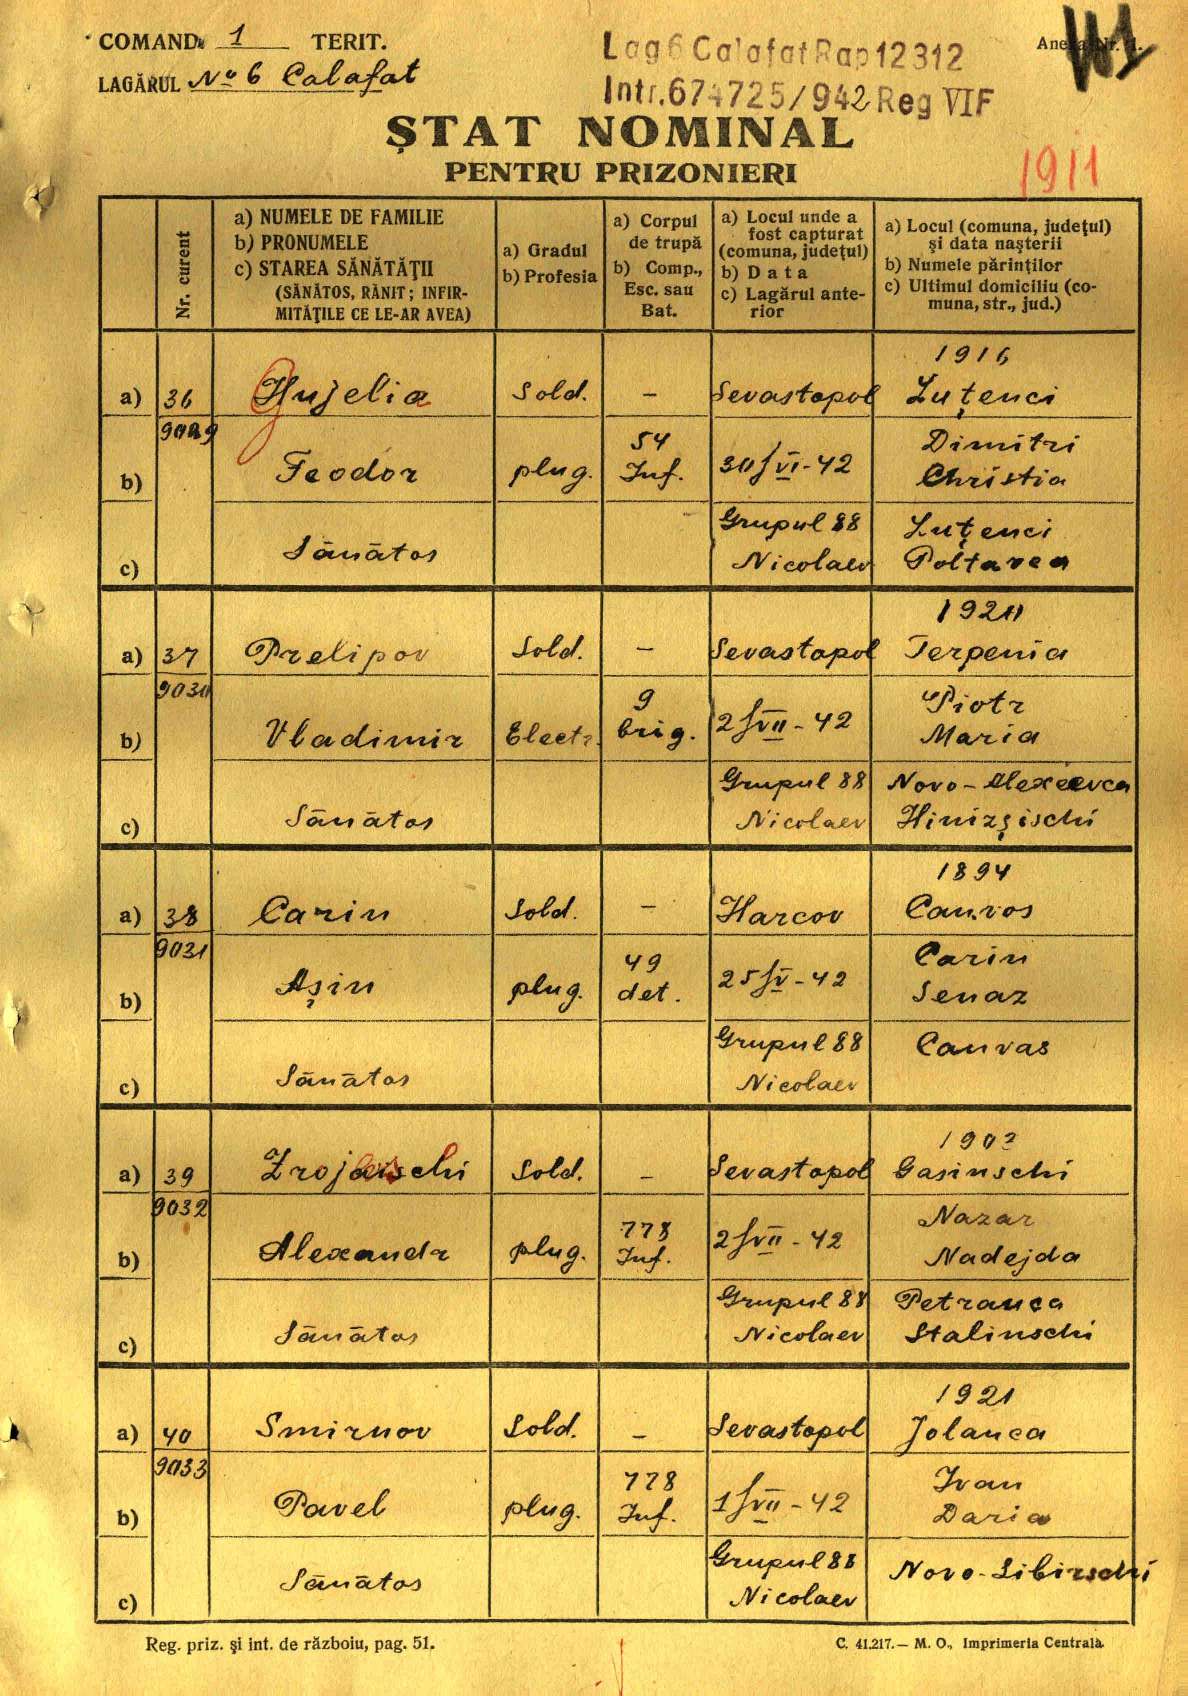 COMAND. 1 TERIT.
LAGĂRUL No 6 Calafat
Lag 6 Calafat Rap 12312
Intr. 674725/942 Reg VII F
Anexa Nr. 1.
ȘTAT NOMINAL
PENTRU PRIZONIERI
1911
Nr. curent
a) NUMELE DE FAMILIE
b) PRONUMELE
c) STAREA SĂNĂTĂȚII
(SĂNĂTOS, RĂNIT; INFIR-
MITĂȚILE CE LE-AR AVEA)
a) Gradul
b) Profesia
a) Corpul
de trupă
b) Comp.,
Esc. sau
Bat.
a) Locul unde a
fost capturat
(comuna, județul)
b) Data
c) Lagărul ante-
rior
a) Locul (comuna, județul)
și data nașterii
b) Numele părinților
c) Ultimul domiciliu (co-
muna, str., jud.)
1916
a) 36 Hujelia Sold. – Sevastopol Luțenci
9029
b) Feodor plug. 54 Inf. 30/VI-42 Dimitri
Christia
c) Sănătos Grupul 88 Luțenci
Nicolaev Poltavca
a) 37 Prelipov Sold. – Sevastopol Terpenia
9030
b) Vladimir Electr. 9 brig. 2/VII-42 Piotr
Maria
c) Sănătos Grupul 88 Novo-Alexeevca
Nicolaev Hinizșischi
1894
a) 38 Carin Sold. – Harcov Canvos
9031
b) Așin plug. 49 det. 25/V-42 Carin
Senaz
c) Sănătos Grupul 88 Canvas
Nicolaev
a) 39 Sold. – Sevastopol Gasinschi
9032
b) Alexandr plug. 778 Inf. 2/VII-42 Nazar
Nadejda
c) Sănătos Grupul 88 Petranca
Nicolaev Stalinschi
1921
a) 40 Smirnov Sold. – Sevastopol Jolanca
9033
b) Pavel plug. 778 Inf. 1/VII-42 Ivan
Daria
c) Sănătos Grupul 88 Novo-Sibirschi
Nicolaev
Reg. priz. și int. de războiu, pag. 51.
C. 41.217.— M. O., Imprimeria Centrală.